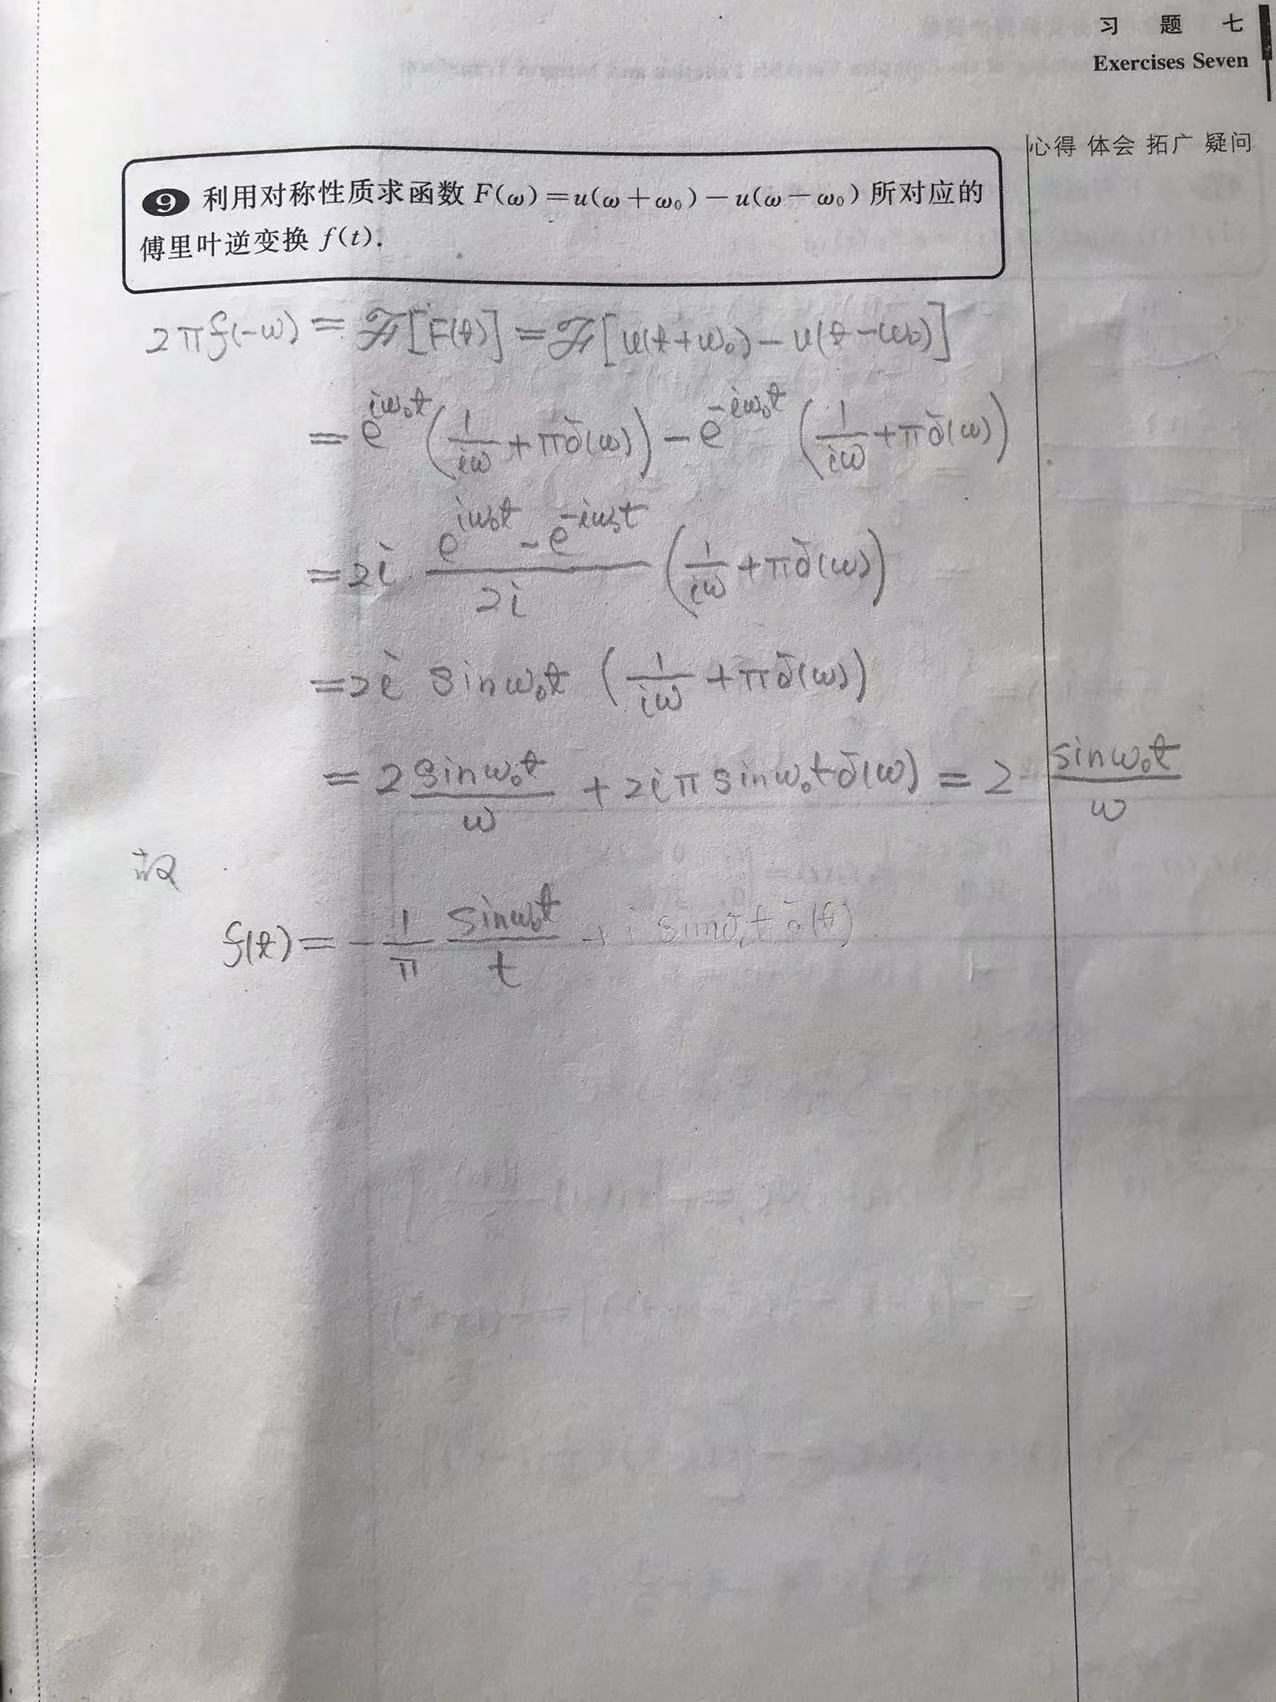 习 题 七
Exercises Seven
心得 体会 拓广 疑问
9 利用对称性质求函数 F(ω)=u(ω+ω₀)-u(ω-ω₀) 所对应的
傅里叶逆变换 f(t).
2πf(-ω) = ℱ[F(t)] = ℱ[u(t+ω₀) - u(t-ω₀)]
= e^{iω₀t} (1/iω + πδ(ω)) - e^{-iω₀t} (1/iω + πδ(ω))
= 2i (e^{iω₀t} - e^{-iω₀t})/2i (1/iω + πδ(ω))
= 2i sinω₀t (1/iω + πδ(ω))
= 2 sinω₀t/ω + 2iπ sinω₀t δ(ω) = 2 sinω₀t/ω
故
f(t) = - 1/π sinω₀t/t + i δ(t)